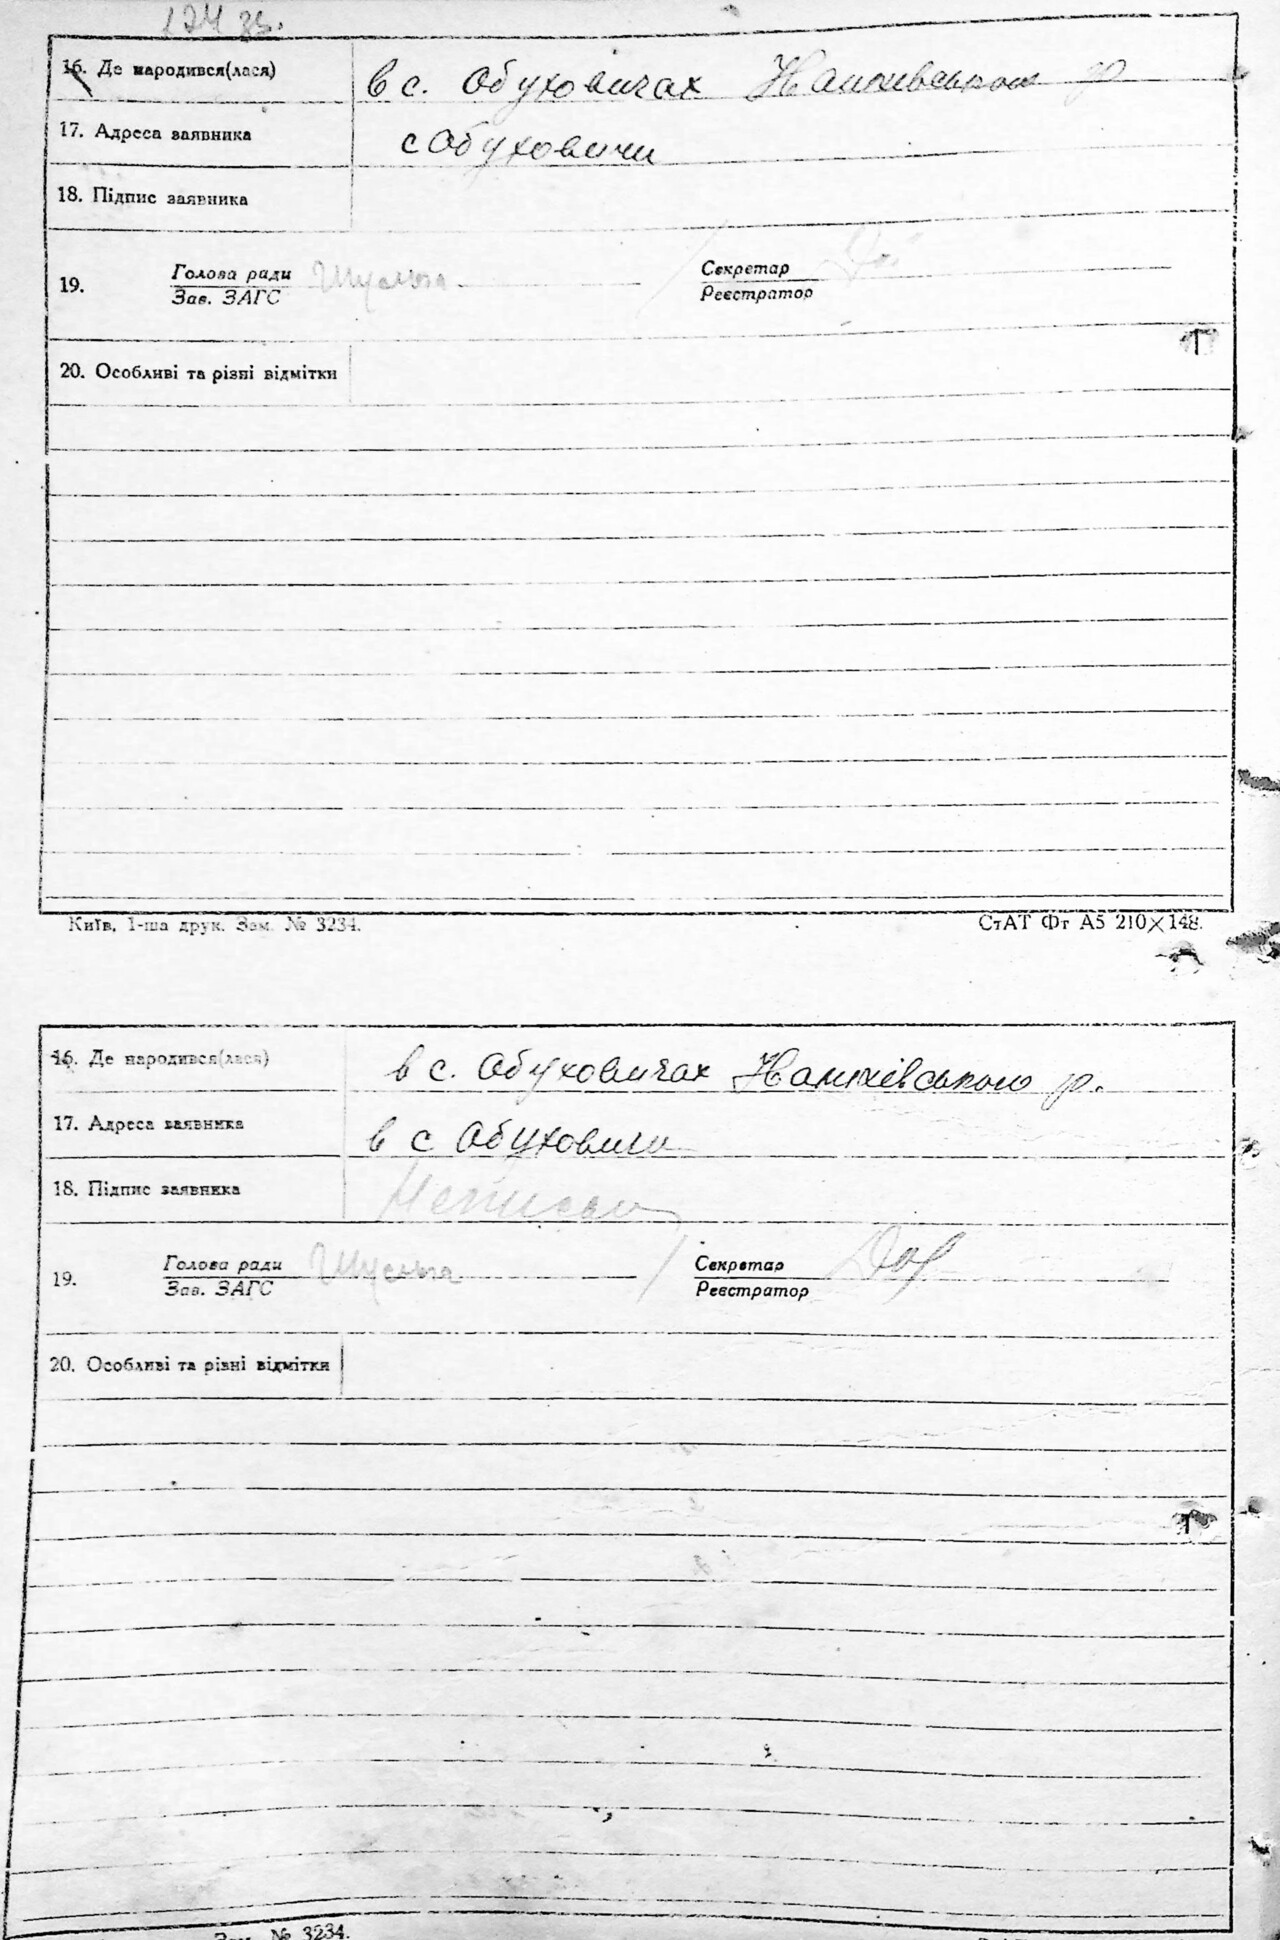 174 зв.
16. Де народився(лася) в с. Обуховичах р
17. Адреса заявника с Обуховичи
18. Підпис заявника
19. Голова ради Шульга Секретар
Зав. ЗАГС Реєстратор
20. Особливі та різні відмітки
Київ, 1-ша друк. Зам. № 3234. СтАТ Фт А5 210×148.
16. Де народився(лася) в с. Обуховичах р.
17. Адреса заявника в с Обуховичи
18. Підпис заявника
19. Голова ради Шульга Секретар
Зав. ЗАГС Реєстратор
20. Особливі та різні відмітки
Зам. № 3234.